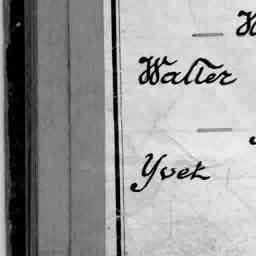 Walter
Yvek